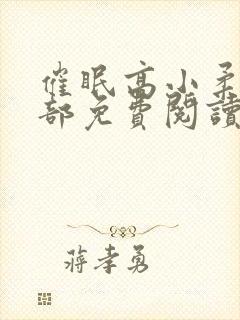 催眠高小柔
部免費閱讀
蔣孝勇